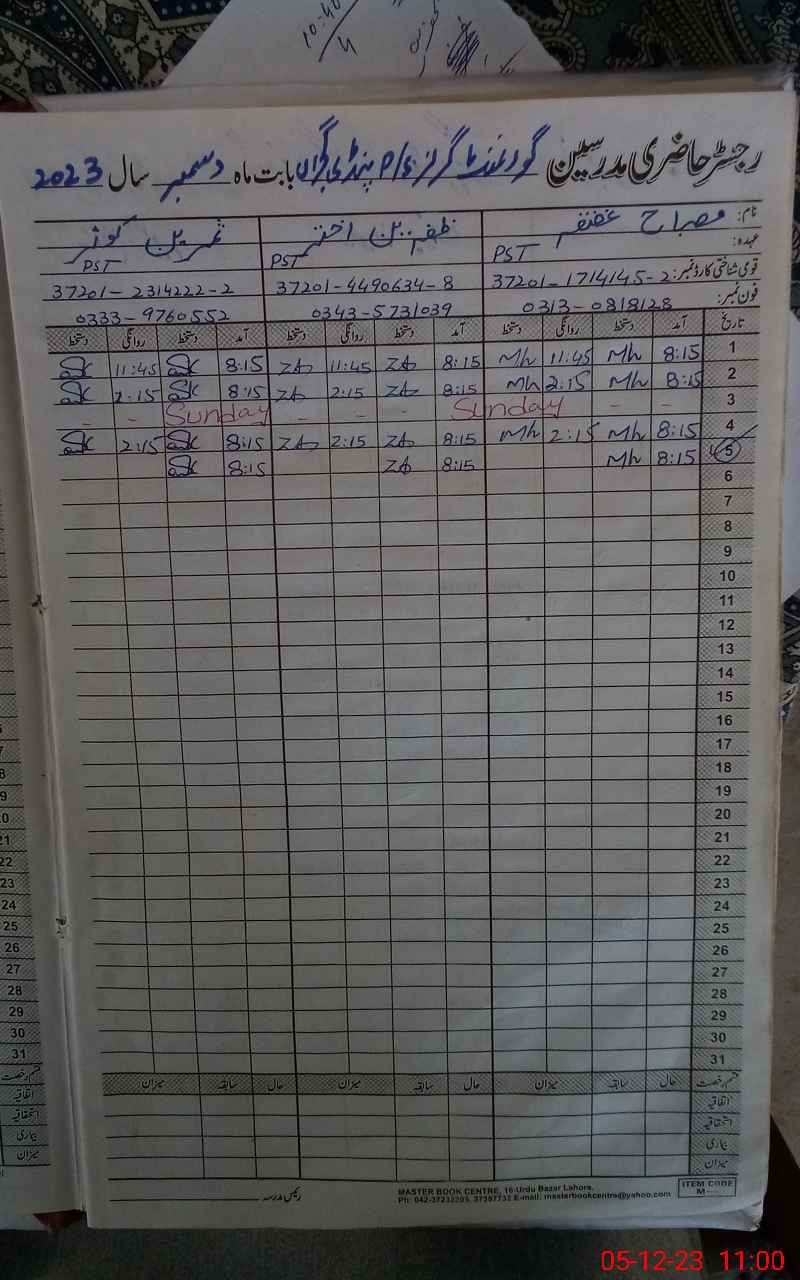 10:40
4
رجسٹر حاضری مدرسین گورنمنٹ گرلز P/S پنڈی گجراں بابت ماہ دسمبر سال 2023
نام: مصباح غضنفر ظفرین اختر ثمرین کوثر
عہدہ: PST PST PST
قومی شناختی کارڈ نمبر: 37201-1714145-2 37201-4490634-8 37201-2314222-2
فون نمبر: 0313-0818128 0343-5731039 0333-9760552
تاریخ آمد دستخط روانگی دستخط آمد دستخط روانگی دستخط آمد دستخط روانگی دستخط
1 8:15 Mh 11:45 Mh 8:15 ZA 11:45 ZA 8:15 SK 11:45 SK
2 8:15 Mh 2:15 Mh 8:15 ZA 2:15 ZA 8:15 SK 2:15 SK
3 - - Sunday - - - Sunday - -
4 8:15 Mh 2:15 Mh 8:15 ZA 2:15 ZA 8:15 SK 2:15 SK
5 8:15 Mh 8:15 ZA 8:15 SK
6
7
8
9
10
11
12
13
14
15
16
17
18
19
20
21
22
23
24
25
26
27
28
29
30
31
قسم رخصت حال سابقہ میزان حال سابقہ میزان حال سابقہ میزان
اتفاقیہ
استحقاقیہ
بیماری
میزان
رئیس مدرسہ
MASTER BOOK CENTRE, 16-Urdu Bazar Lahore.
Ph: 042-37232205, 37357732 E-mail: masterbookcentre@yahoo.com
ITEM CODE
M
21
22
23
24
25
26
27
28
29
30
31
قسم رخصت
اتفاقیہ
استحقاقیہ
بیماری
میزان
05-12-23 11:00